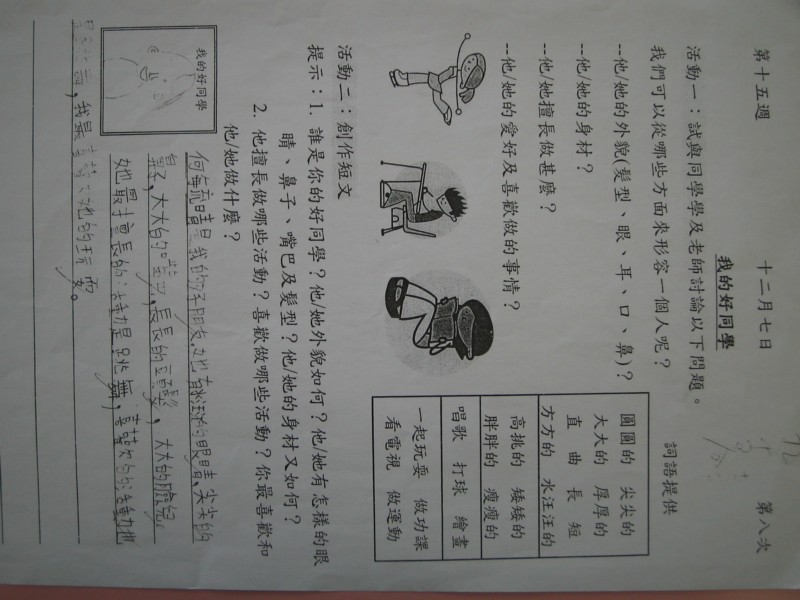 第十五週 十二月七日 第八次
我的好同學
活動一：試與同學學及老師討論以下問題。
我們可以從哪些方面來形容一個人呢？
--他/她的外貌(髮型、眼、耳、口、鼻)？
--他/她的身材？
--他/她擅長做甚麼？
--他/她的愛好及喜歡做的事情？
詞語提供
圓圓的 尖尖的
大大的 厚厚的
直 曲 長 短
方方的 水汪汪的
高挑的 矮矮的
胖胖的 瘦瘦的
唱歌 打球 繪畫
一起玩耍 做功課
看電視 做運動
活動二：創作短文
提示：1. 誰是你的好同學？他/她外貌如何？他/她有怎樣的眼
睛、鼻子、嘴巴及髮型？他/她的身材又如何？
2. 他擅長做哪些活動？喜歡做哪些活動？你最喜歡和
他/她做什麼？
我的好同學
是我的好朋友,她有 的眼睛尖尖的
鼻子,大大的 ,長長的頭髮,大大的臉兒
她最擅長的活動是跳舞,喜歡的活動也
是 ,我最喜歡 她的玩耍。